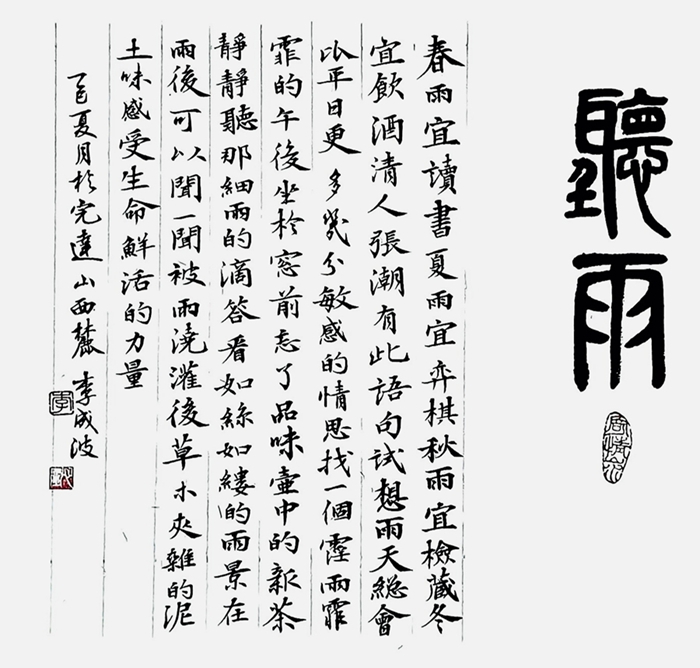 聽雨
春雨宜讀書夏雨宜弈棋秋雨宜檢藏冬
宜飲酒清人張潮有此語句試想雨天總會
比平日更多幾分敏感的情思找一個霪雨霏
霏的午後坐於窓前忘了品味壺中的新茶
靜靜聽那細雨的滴答看如絲如縷的雨景在
雨後可以聞一聞被雨澆灌後草木夾雜的泥
土味感受生命鮮活的力量
乙巳夏月於完達山西麓 李成波
李